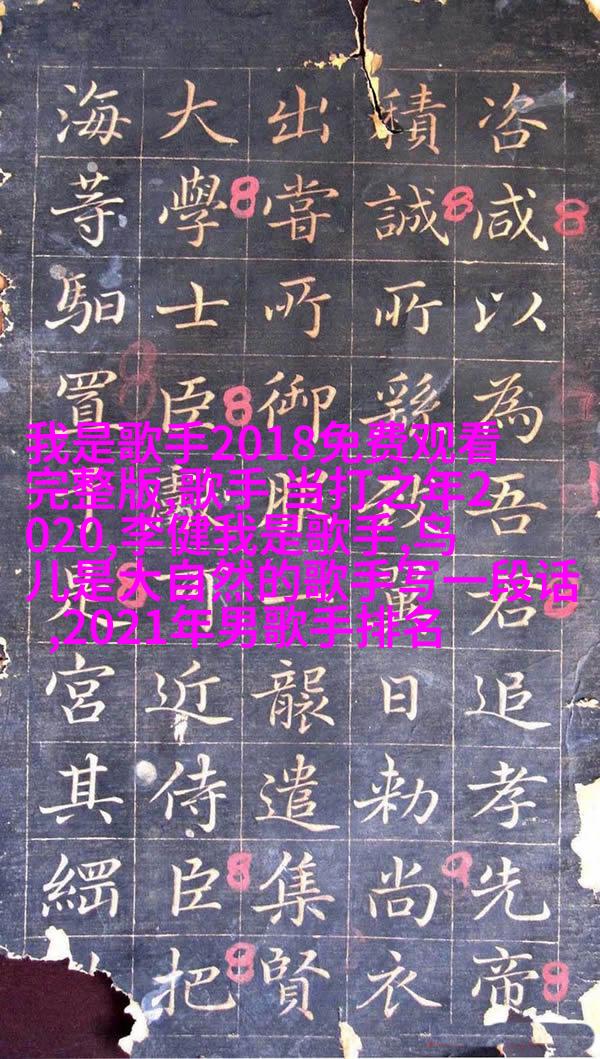 咨咸以為吾君追孝先帝
積誠所繇致日勑尚衣
出嘗所御服一襲遣集賢
大學士臣近侍臣把
海䓁馹置宮其
我是歌手2018免费观看
完整版,歌手·当打之年2
020,李健我是歌手,鸟
儿是大自然的歌手写一段话
,2021年男歌手排名